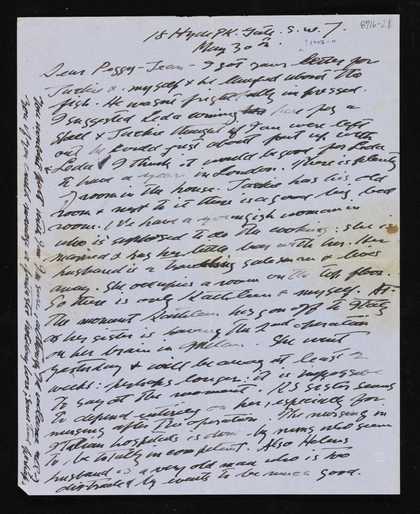 18 Hyde Pk. Gate. S.W.7.
May 30th
8716-21
Dear Peggy-Jean - I got your letter for
Jackie & myself & he laughed about the
fish. He wasn't frightfully impressed.
I suggested Leda coming here for a
& Jackie thought if you were left
out he could just about put up with
Leda. I think it would be good for Leda
to have a year in London. There is plenty
of room in the house. Jackie has his old
room & next to it there is a good big bed
room. I've have a youngish woman in
who is supposed to do the cooking: she is
married & has her little boy with her. Her
husband is a travelling salesman & lives
away. She occupies a room on the top floor.
So there is only Kathleen & myself. At
the moment Kathleen has gone off to Italy
as her sister is having the 2nd operation
on her brain in Milan. She went
yesterday & will be away at least 2
weeks: perhaps longer: it is impossible
to say at the moment. K's sister seems
to depend entirely on her, especially for
nursing after the operation. The nursing in
Italian hospitals is done by nuns who seem
to be totally incompetent. Also Helen's
husband is a very old man who is too
distracted by events to be much good.